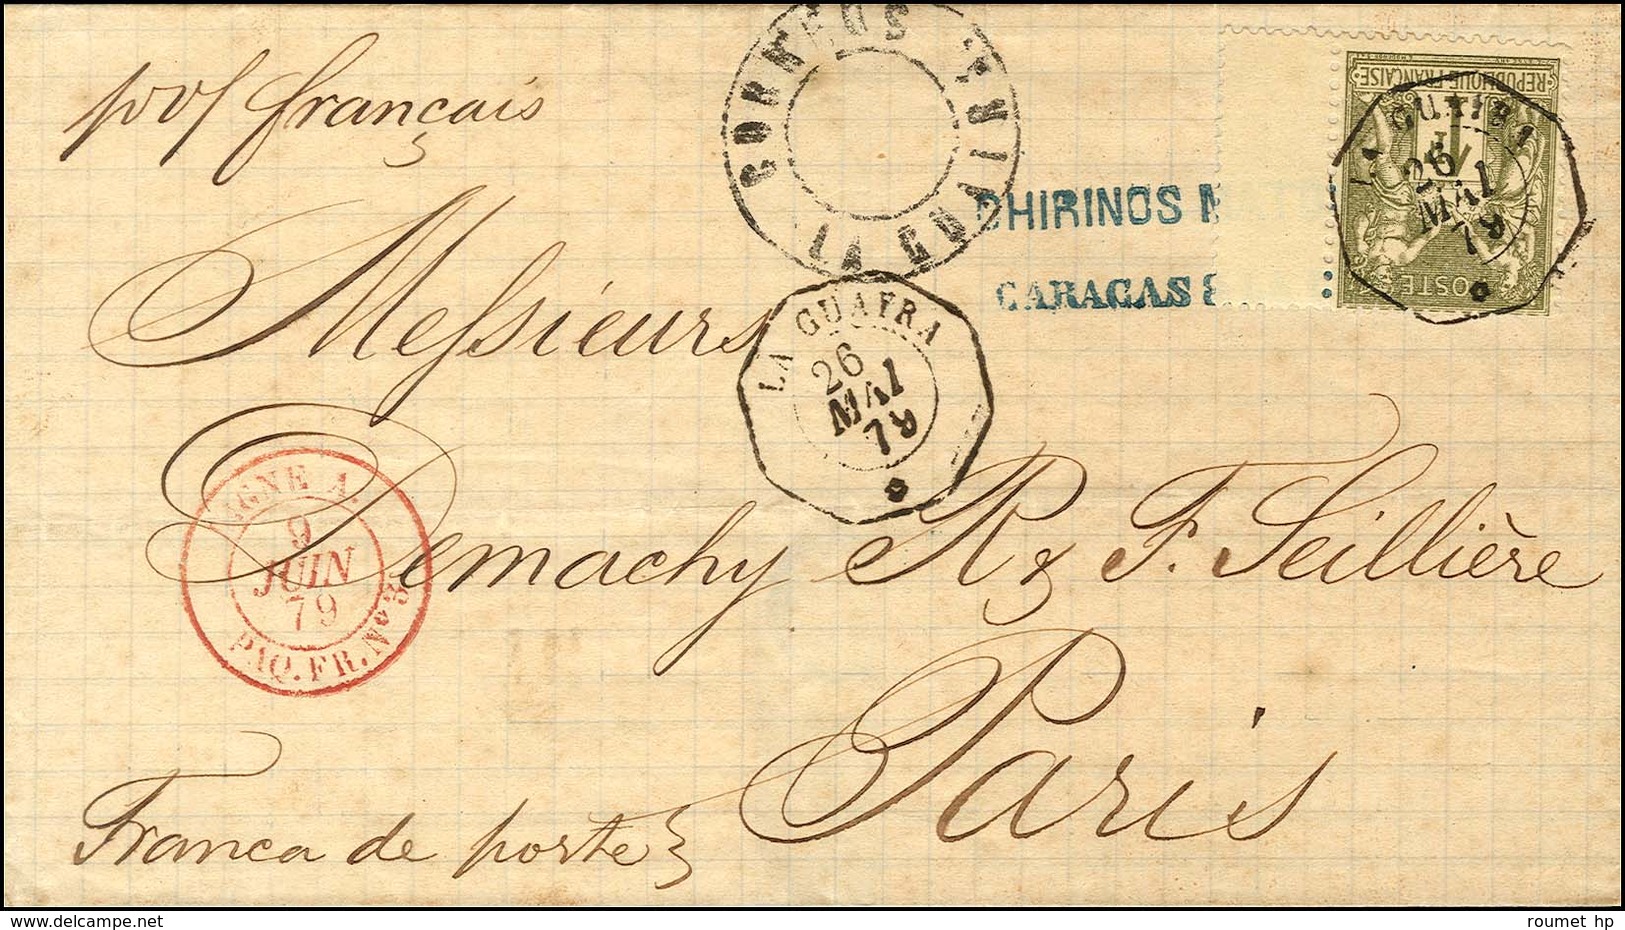 pr vr français
CORREOS
CHIRINOS M
CARACAS
REPUBLIQUE FRANÇAISE
1
POSTE
LA GUAIRA
26
MAI
79
Messieurs
LA GUAYRA
26
MAI
79
LIGNE A.
9
JUIN
79
PAQ. FR. No 3
Demachy R & F. Seillière
Paris
Franca de porte
delcampe.net
roumet hp